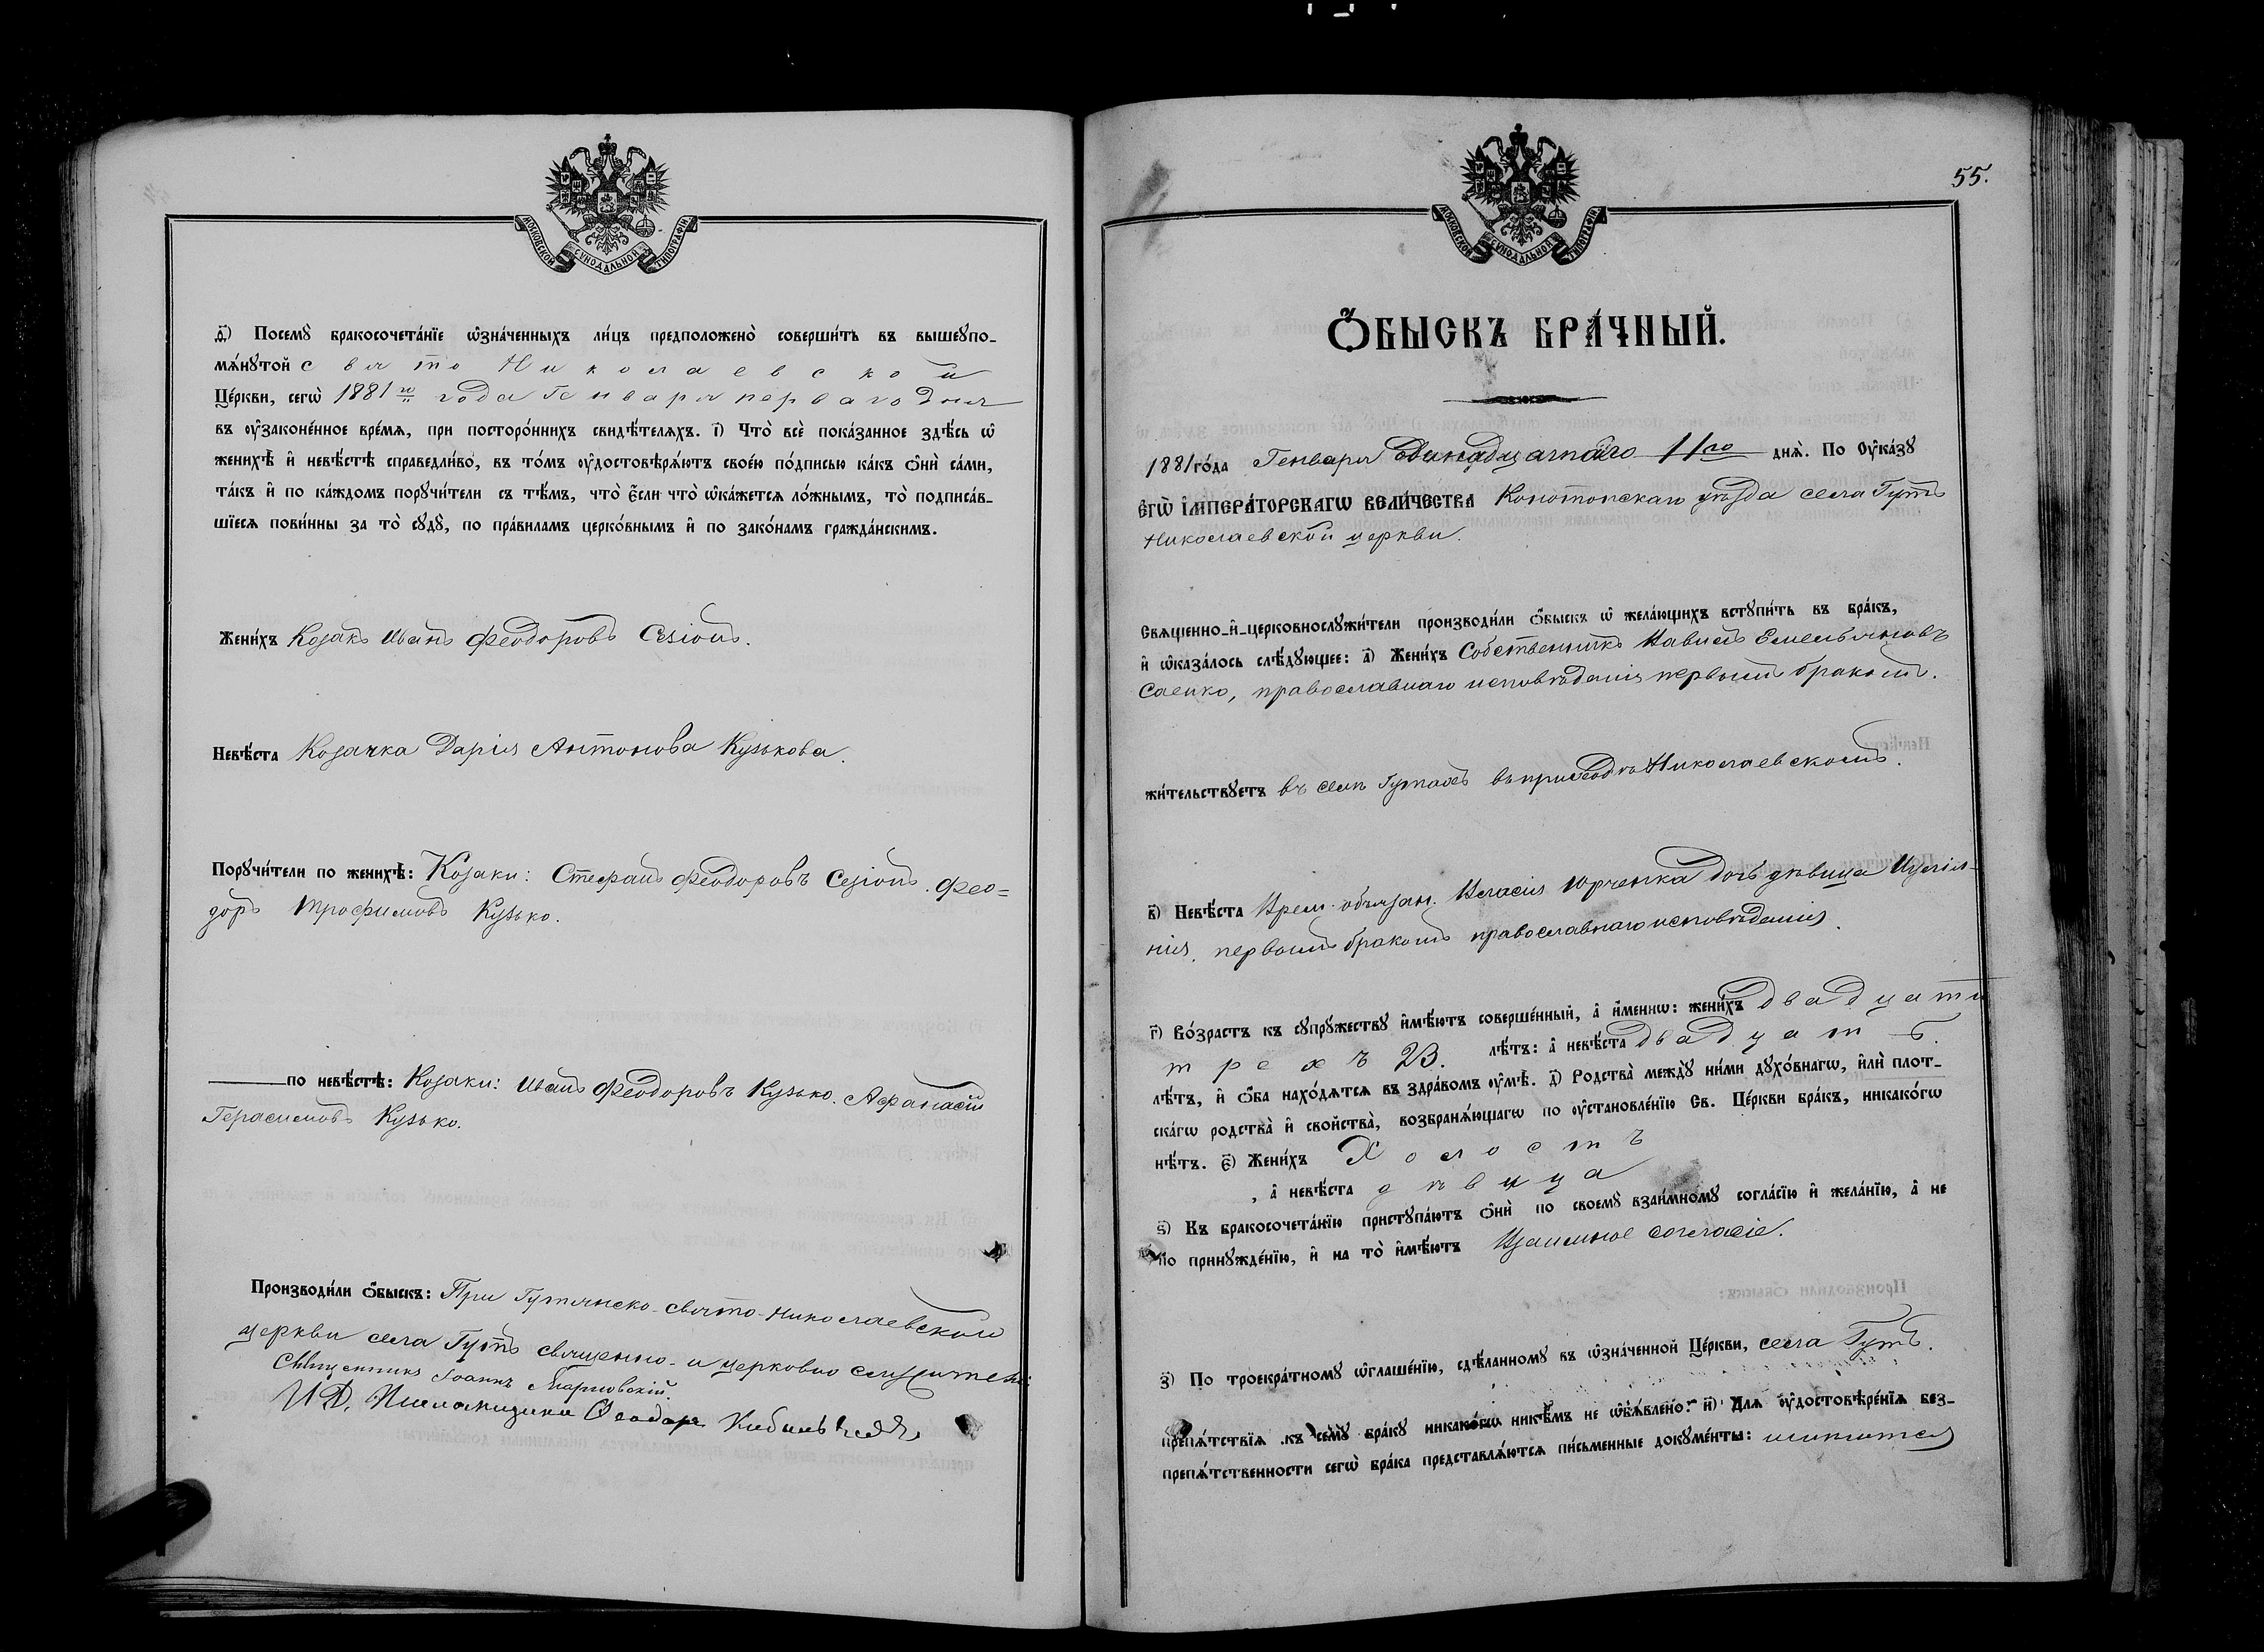 МОСКОВСКОЙ СУНОДАЛЬНОЙ ТИПОГРАФІИ
д҃і) Посемꙋ̀ бракосочета́нїе ѡ҆зна́ченныхъ ли́цъ предположено̀ соверши́ть въ вышеꙋпо-
мѧ́нꙋтой свято Николаевской
Це́ркви, сегѡ̀ 1881го года Генваря перваго дня
въ ᲂу҆законе́нное вре́мѧ, при посторо́ннихъ свидѣ́телѧхъ. і҃) Что̀ всѐ пока́занное здѣ́сь ѡ҆
женихѣ̀ и҆ невѣ́стѣ справедли́во, въ то́мъ ᲂу҆достовѣрѧ́ютъ свое́ю по́дписью ка́къ ѻ҆нѝ са́ми,
та́къ и҆ по ка́ждомъ порꙋчи́тели съ тѣ́мъ, что̀ є҆́сли что̀ ѡ҆ка́жетсѧ ло́жнымъ, то̀ подписа́в-
шїесѧ пови́нны за то̀ сꙋдꙋ̀, по пра́виламъ церко́внымъ и҆ по зако́намъ гражда́нскимъ.
Жени́хъ Козакъ Иванъ Феодоровъ
Невѣ́ста Козачка Дарія Антонова Кузькова.
Порꙋчи́тели по женихѣ̀: Козаки: Стефанъ Феодоровъ Фео=
доръ Трофимовъ Кузько.
по невѣ́стѣ: Козаки: Иванъ Феодоровъ Кузько. Афанасій
Герасимовъ Кузько.
Производи́ли ѻ҆́быскъ: При Гутянско-свято-Николаевской
церкви села Гутъ священно- и церковно служители:
Священникъ Іоаннъ
И. Д. Псаломщика Ѳеодоръ
55.
МОСКОВСКОЙ СУНОДАЛЬНОЙ ТИПОГРАФІИ
Ѻ҆́БЫСКЪ БРА́ЧНЫЙ.
1881 го́да Генваря Одинадцатаго 11го днѧ̀. По Оу҆ка́зꙋ
Є҆ГѠ̀ І҆МПЕРА́ТОРСКАГѠ ВЕЛИ́ЧЕСТВА Конотопскаго уѣзда села Гутъ
Николаевской церкви.
Свѧще́нно-и҆-церковнослꙋжи́тели производи́ли ѻ҆́быскъ ѡ҆ жела́ющихъ встꙋпи́ть въ бра́къ,
и҆ ѡ҆каза́лось слѣ́дꙋющее: а҃) Жени́хъ Собственникъ Павелъ Емельяновъ
Саенко, православнаго исповѣданія первымъ бракомъ.
жи́тельствꙋетъ въ селѣ Гутахъ въ приходѣ Николаевскомъ.
в҃) Невѣ́ста Врем. обязан. Власія Юрченка дочь дѣвица
первымъ бракомъ православнаго исповѣданія.
г҃) Во́зрастъ къ сꙋпрꙋ́жествꙋ и҆мѣ́ютъ соверше́нный, а҆ и҆́менно: жени́хъ двадцати
трехъ 23. лѣ́тъ: а҆ невѣ́ста двадцать.
лѣ́тъ, и҆ ѻ҆́ба нахо́дѧтсѧ въ здра́вомъ ᲂу҆мѣ̀. д҃) Родства̀ междꙋ̀ ни́ми дꙋхо́внагѡ, и҆лѝ плот-
ска́гѡ родства̀ и҆ сво́йства̀, возбранѧ́ющагѡ по ᲂу҆становле́нїю Св. Це́ркви бра́къ, никако́гѡ
нѣ́тъ. є҃) Жени́хъ Холостъ
, а҆ невѣ́ста дѣвица
ѕ҃) Къ бракосочета́нїю пристꙋпа́ютъ ѻ҆нѝ по своемꙋ̀ взаи́мномꙋ согла́сїю и҆ жела́нїю, а҆ не
по принꙋжде́нїю, и҆ на то̀ и҆мѣ́ютъ Взаимное согласіе.
з҃) По троекра́тномꙋ ѡ҆глаше́нїю, сдѣ́ланномꙋ въ ѡ҆зна́ченной Це́ркви, села Гутъ.
препѧ́тствїѧ къ семꙋ̀ бра́кꙋ никако́гѡ никѣ́мъ не ѡ҆б̾ѧ́влено. и҃) Длѧ ᲂу҆достовѣре́нїѧ без-
препѧ́тственности сегѡ̀ бра́ка представлѧ́ютсѧ пи́сьменные докꙋме́нты: имѣются